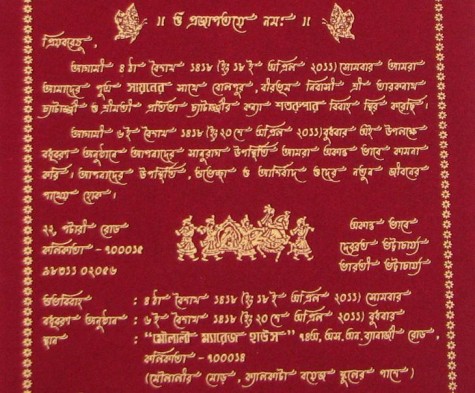 ॥ ওঁ প্রজাপতয়ে নমঃ ॥
প্রিয়বরেষু,
আগামী ৪ ঠা বৈশাখ ১৪১৮ (ইং ১৮ ই এপ্রিল ২০১১) সোমবার আমরা
আমাদের পুত্র সায়নের সাথে বোলপুর, বীরভূম নিবাসী শ্রী তারকনাথ
চ্যাটার্জ্জী ও শ্রীমতী প্রতিভা চ্যাটার্জ্জীর কন্যা শতরূপার বিবাহ স্থির করেছি।
আগামী ৬ ই বৈশাখ ১৪১৮ (ইং ২০ শে এপ্রিল ২০১১) বুধবার এই উপলক্ষে
বধূবরণ অনুষ্ঠানে আপনাদের সানুরাগ উপস্থিতি আমরা একান্ত ভাবে কামনা
করি। আপনাদের উপস্থিতি, শুভেচ্ছা ও আশীর্বাদ ওদের নতুন জীবনের
পাথেয় হোক।
২২, পটারী রোড
কলিকাতা - ৭০০০১৫
৯৮৩১১ ০২০৫৬
একান্ত ভাবে
দেবব্রত ভট্টাচার্য্য
ভারতী ভট্টাচার্য্য
শুভবিবাহ : ৪ ঠা বৈশাখ ১৪১৮ (ইং ১৮ ই এপ্রিল ২০১১) সোমবার
বধূবরণ অনুষ্ঠান : ৬ ই বৈশাখ ১৪১৮ (ইং ২০ শে এপ্রিল ২০১১) বুধবার
স্থান : "মৌলালী ম্যারেজ হাউস" ৭৪এ, এস. এন. ব্যানার্জী রোড,
কলিকাতা - ৭০০০১৪
(মৌলালীর মোড়, ক্যালকাটা বয়েজ স্কুলের পাশে)